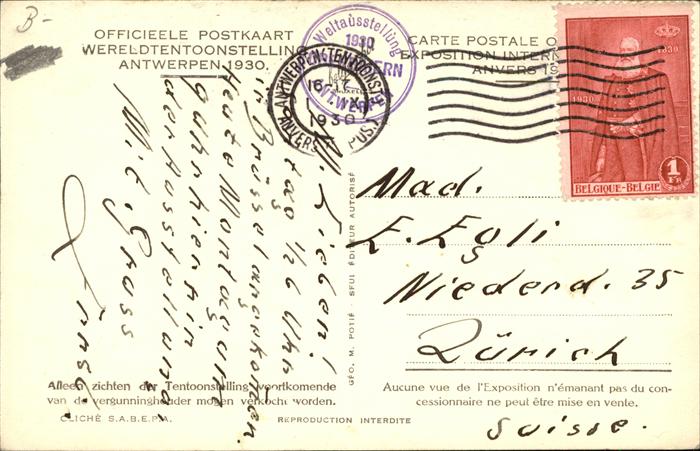 B-
OFFICIEELE POSTKAART
WERELDTENTOONSTELLING
ANTWERPEN 1930.
Weltausstellung
1930
ANTWERPEN
ANTWERPEN TENTOONST.
1930
ANVERS
CARTE POSTALE O
EXPOSITION INTERN
ANVERS 19
1830
1930
1 FR
BELGIQUE-BELGIE
M. Lieben!
tag 1/26 Uhr
in Brüssel angekommen.
Heute Montag um
der Ausstellung.
Mit Gruss
Mad.
E. Egli
Niederd. 35
Zürich
Suisse.
GÉO. M. POTIÉ SEUL ÉDITEUR AUTORISÉ
Alleen zichten der Tentoonstelling voortkomende
van de vergunninghouder mogen verkocht worden.
CLICHÉ S.A.B.E.P.A.
REPRODUCTION INTERDITE
Aucune vue de l'Exposition n'émanant pas du con-
cessionnaire ne peut être mise en vente.